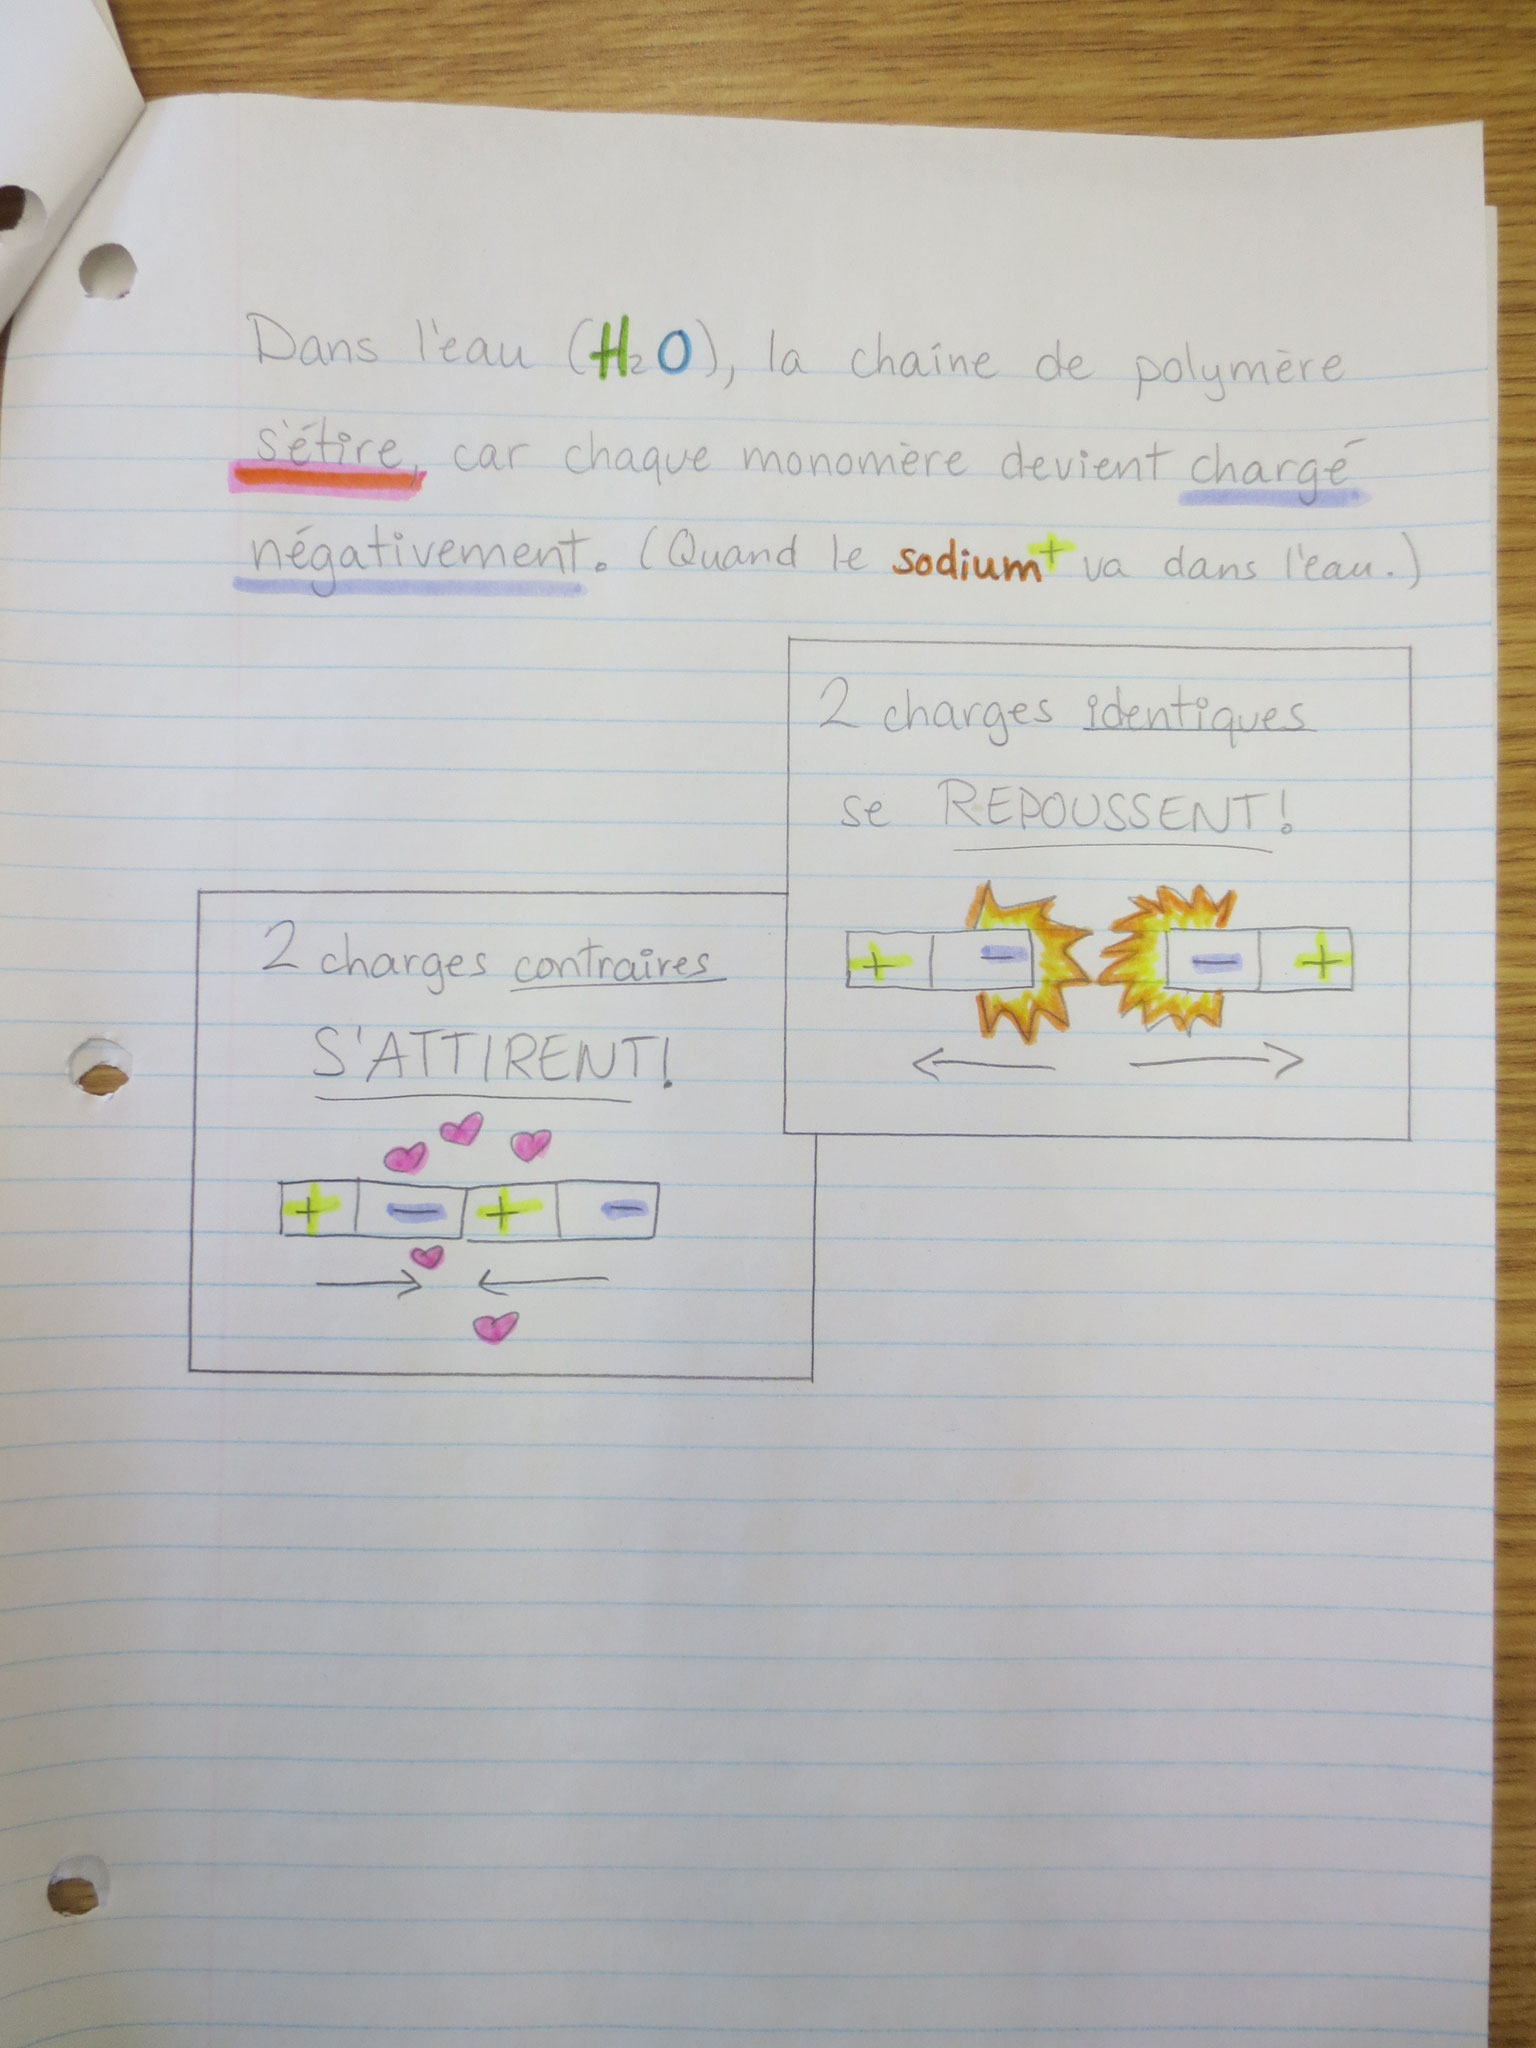 Dans l'eau (H₂O), la chaîne de polymère
s'étire, car chaque monomère devient chargé
négativement. (Quand le sodium⁺ va dans l'eau.)
2 charges identiques
se REPOUSSENT!
+ - - +
2 charges contraires
S'ATTIRENT!
+ - + -